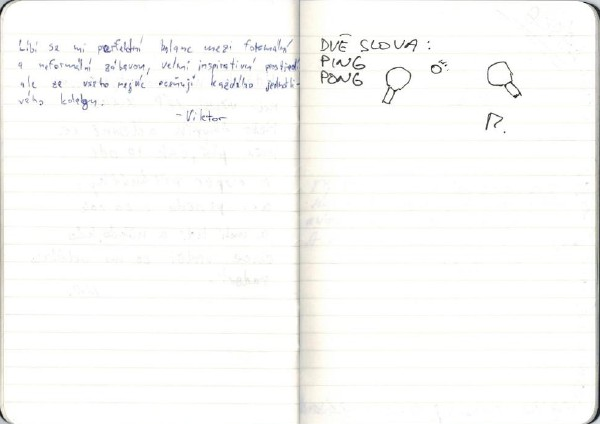 Líbí se mi perfektní balanc mezi formální
a neformální zábavou, velmi inspirativní prostředí
ale ze všeho nejvíc oceňuji každého jednotli-
vého kolegu.
-Viktor
DVĚ SLOVA:
PING
PONG